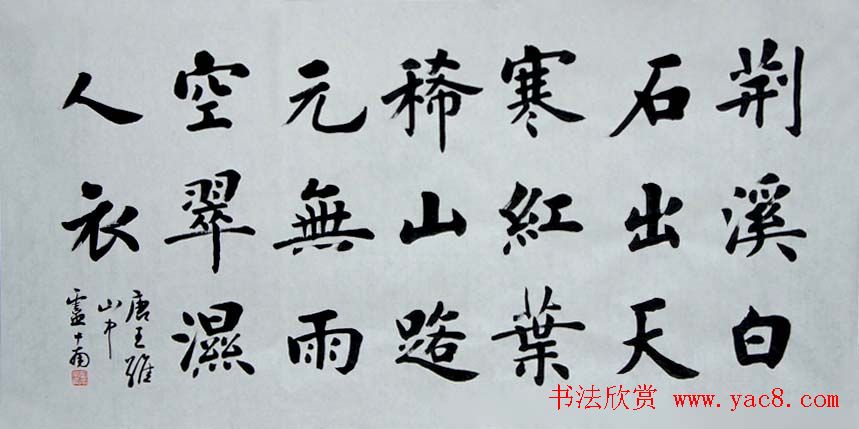 荆溪白
石出天
寒紅葉
稀山路
元無雨
空翠濕
人衣
唐王維
山中
书法欣赏 www.yac8.com